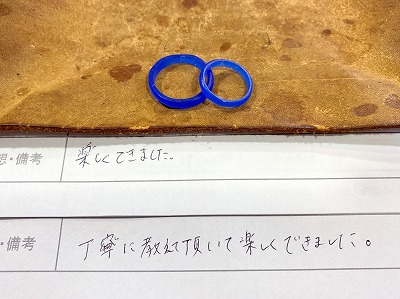 想・備考 楽しくできました。
・備考 丁寧に教えて頂いて楽しくできました。